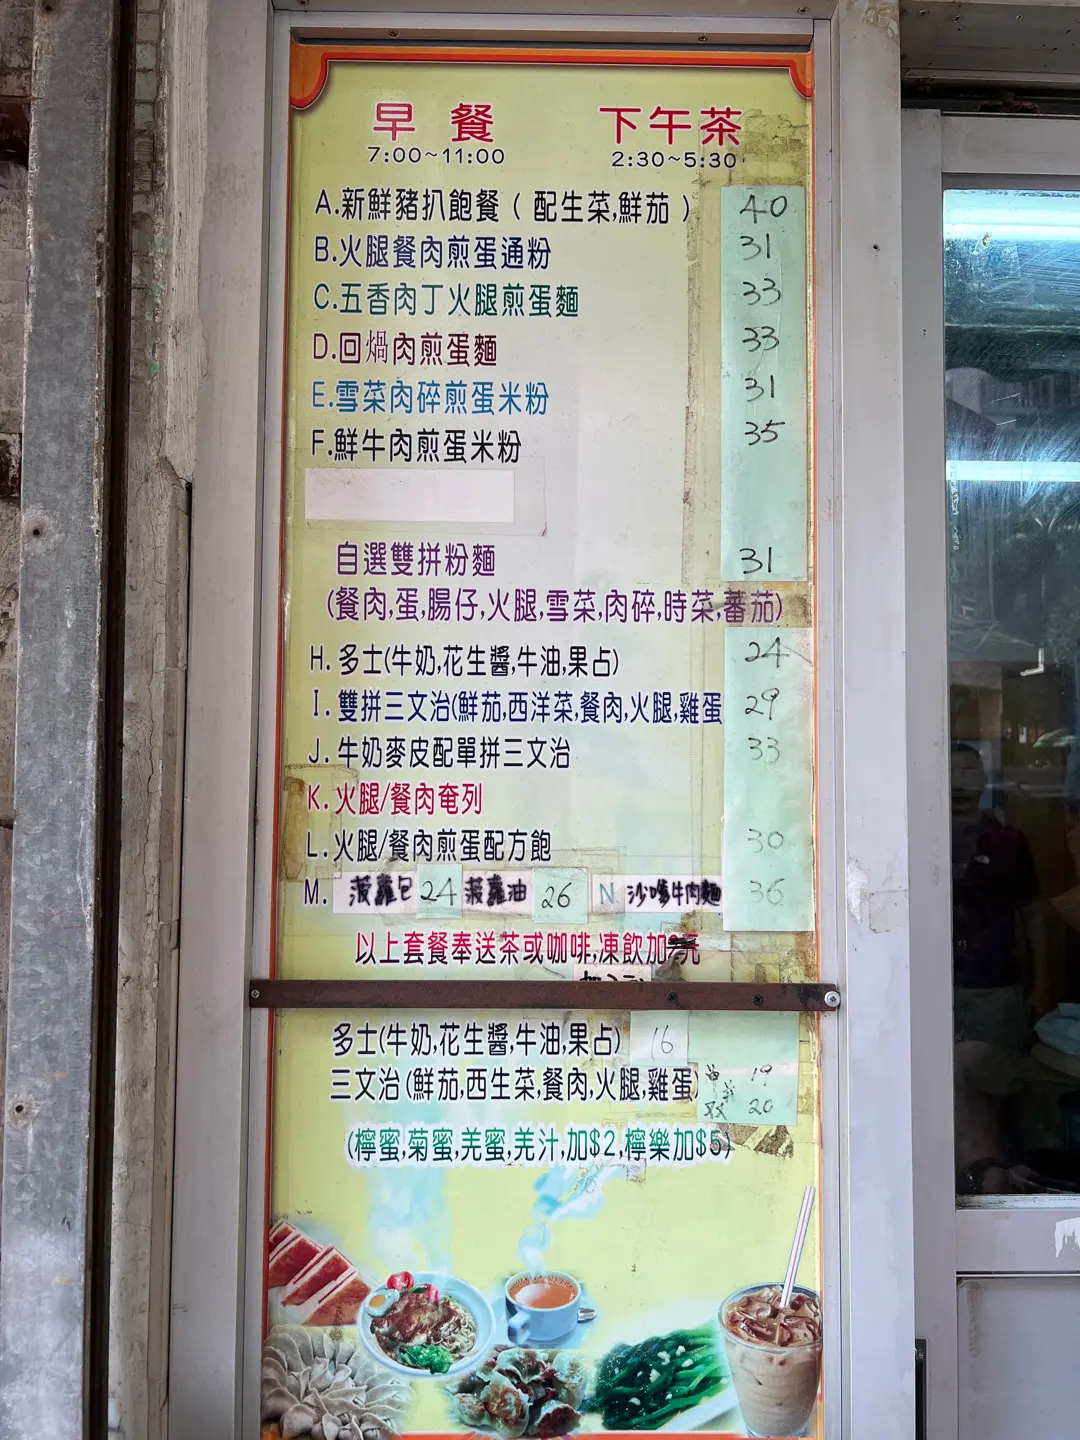 早餐 下午茶
7:00~11:00 2:30~5:30
A.新鮮豬扒飽餐（配生菜,鮮茄） 40
B.火腿餐肉煎蛋通粉 31
C.五香肉丁火腿煎蛋麵 33
D.回煱肉煎蛋麵 33
E.雪菜肉碎煎蛋米粉 31
F.鮮牛肉煎蛋米粉 35
自選雙拼粉麵 31
(餐肉,蛋,腸仔,火腿,雪菜,肉碎,時菜,蕃茄)
H.多士(牛奶,花生醬,牛油,果占) 24
I.雙拼三文治(鮮茄,西洋菜,餐肉,火腿,雞蛋 29
J.牛奶麥皮配單拼三文治 33
K.火腿/餐肉奄列
L.火腿/餐肉煎蛋配方飽 30
M. 菠蘿包 24 菠蘿油 26 N 沙嗲牛肉麵 36
以上套餐奉送茶或咖啡,凍飲加元
多士(牛奶,花生醬,牛油,果占) 16
三文治(鮮茄,西生菜,餐肉,火腿,雞蛋) 19
20
(檸蜜,菊蜜,羌蜜,羌汁,加$2,檸樂加$5)